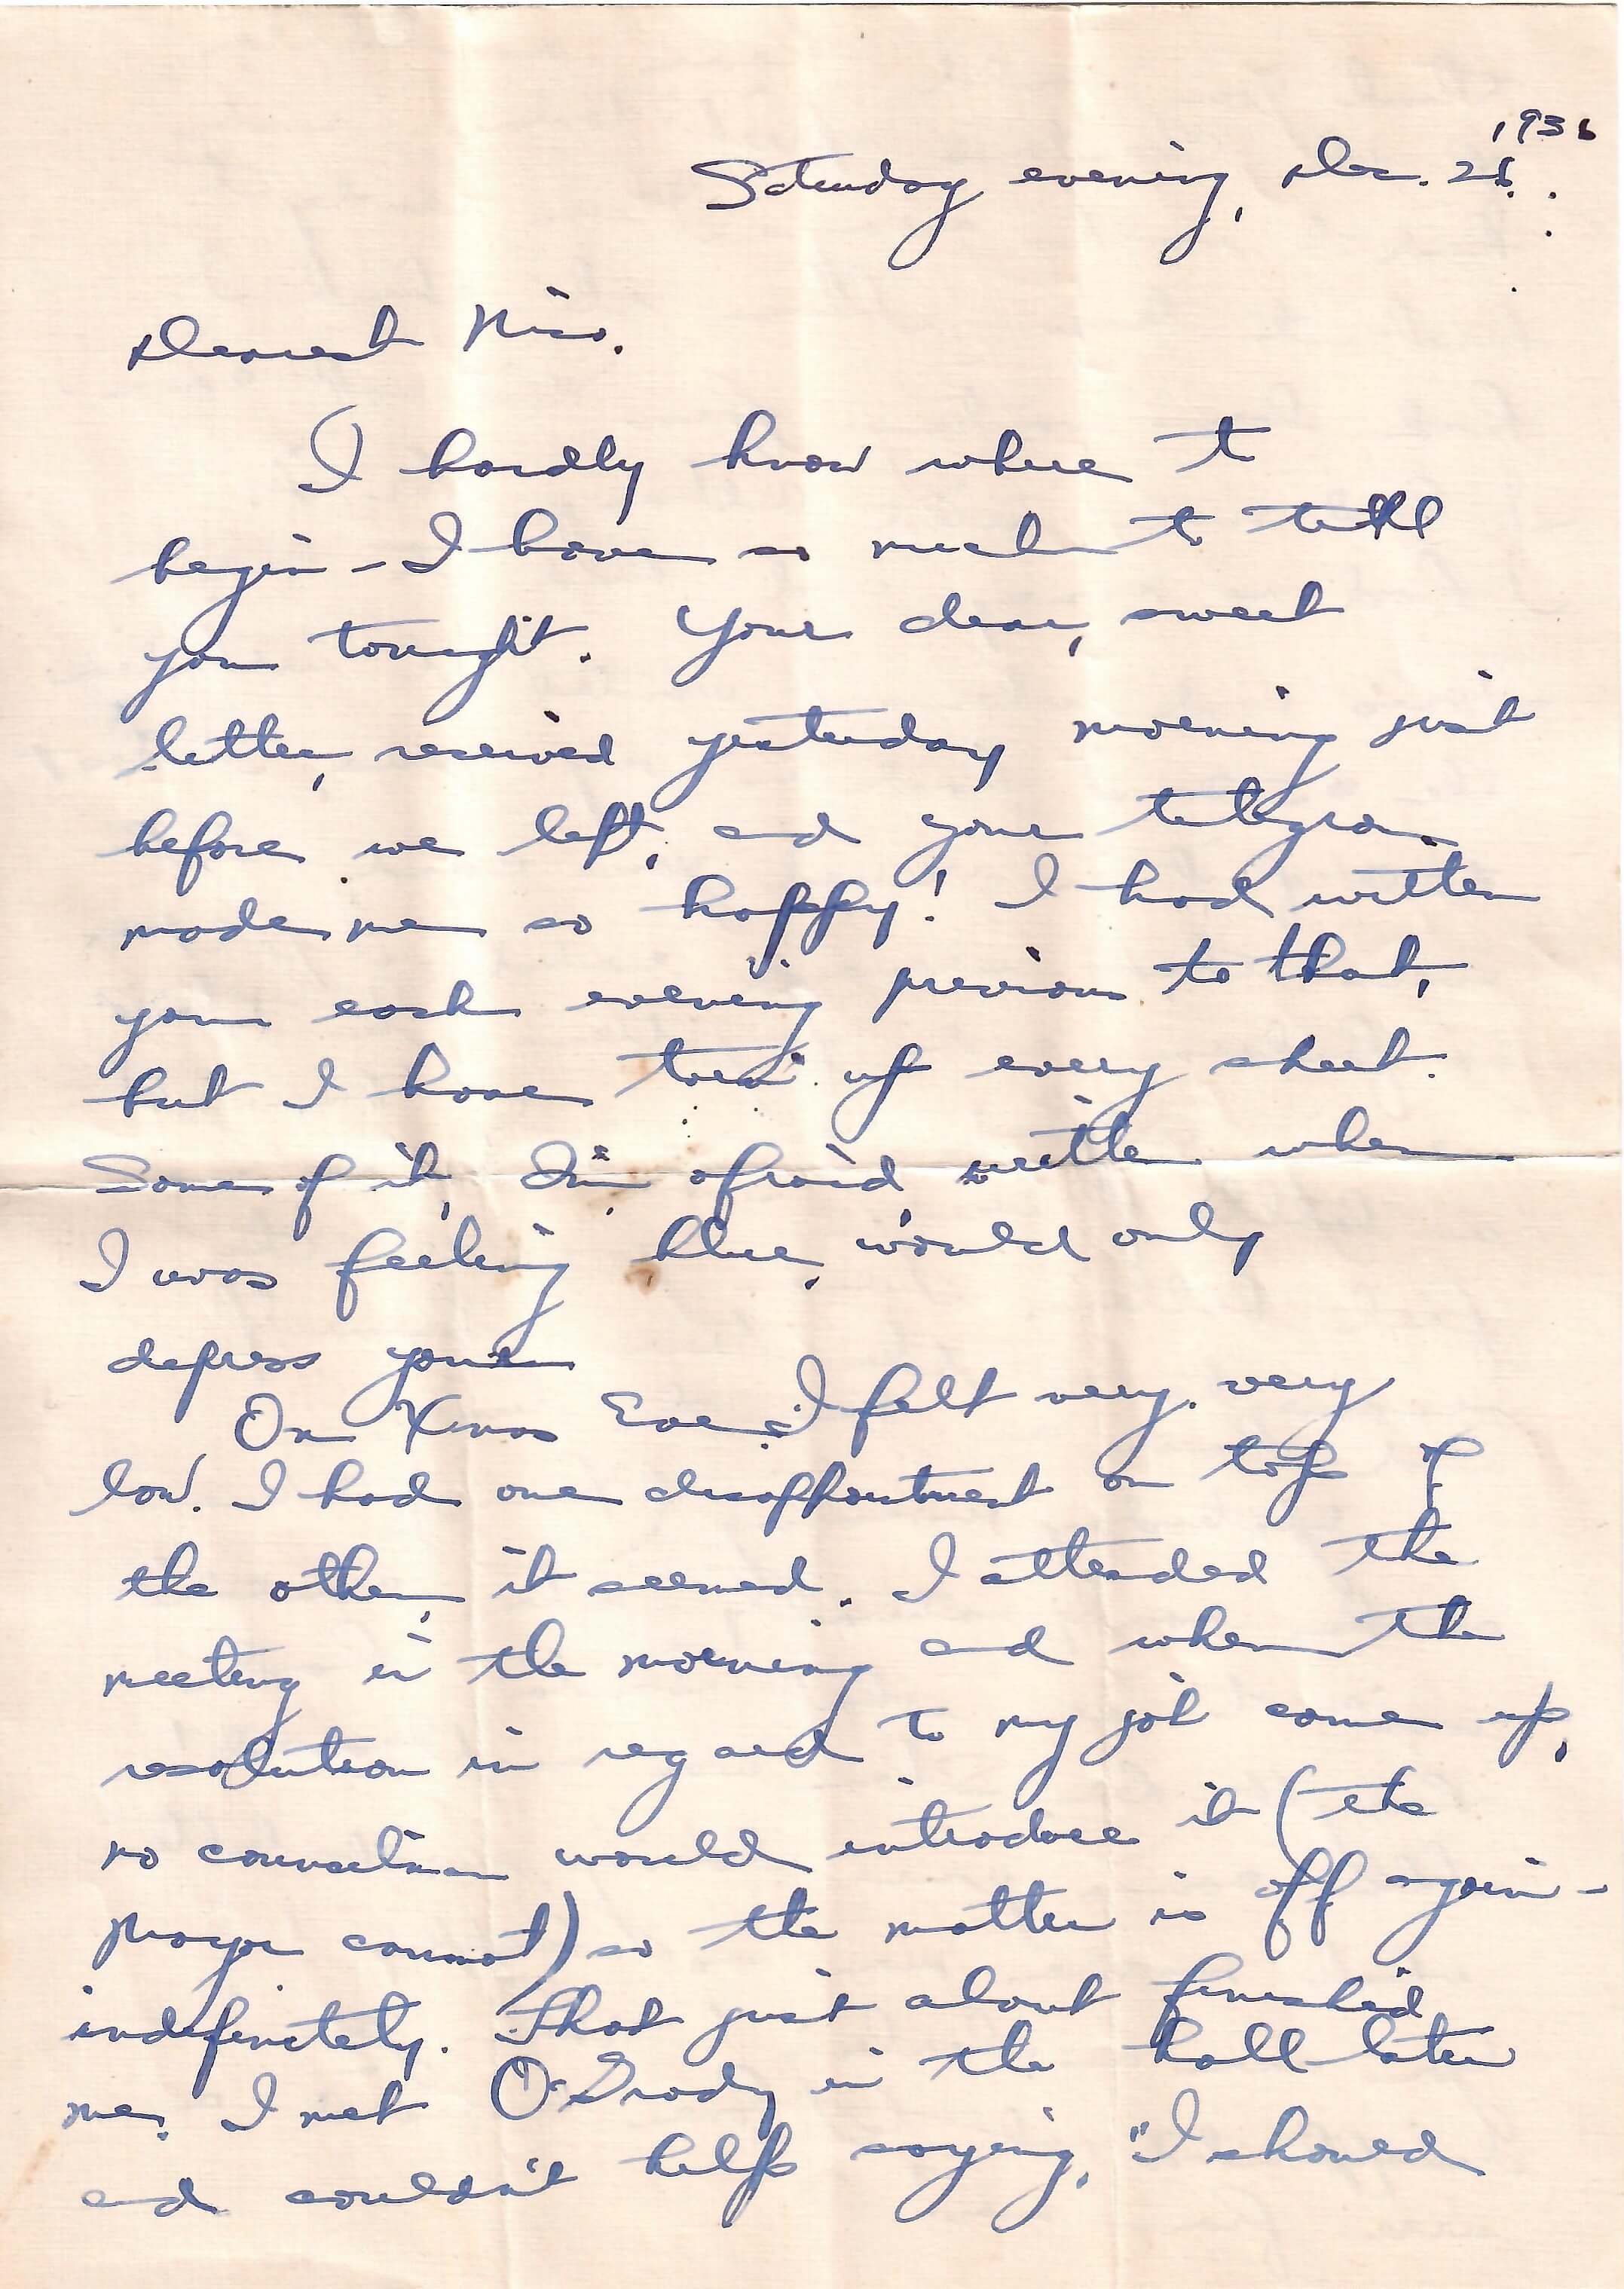 1936
Saturday evening, Dec. 26.
Dearest Nico.
I hardly know where to
begin - I have so much to tell
you tonight. Your dear, sweet
letter, received yesterday morning just
before we left, and your telegram
made me so happy! I had written
you each evening previous to that,
but I have torn up every sheet.
Some of it, I'm afraid, written when
I was feeling blue, would only
depress you.
On Xmas Eve I felt very, very
low. I had one disappointment on top of
the other, it seemed. I attended the
meeting in the morning and when the
resolution in regard to my job came up,
no councilman would introduce it (the
Mayor cannot) so the matter is off again -
indefinitely. That just about finished
me. I met O'Grady in the hall later
and couldn't help saying, "I should